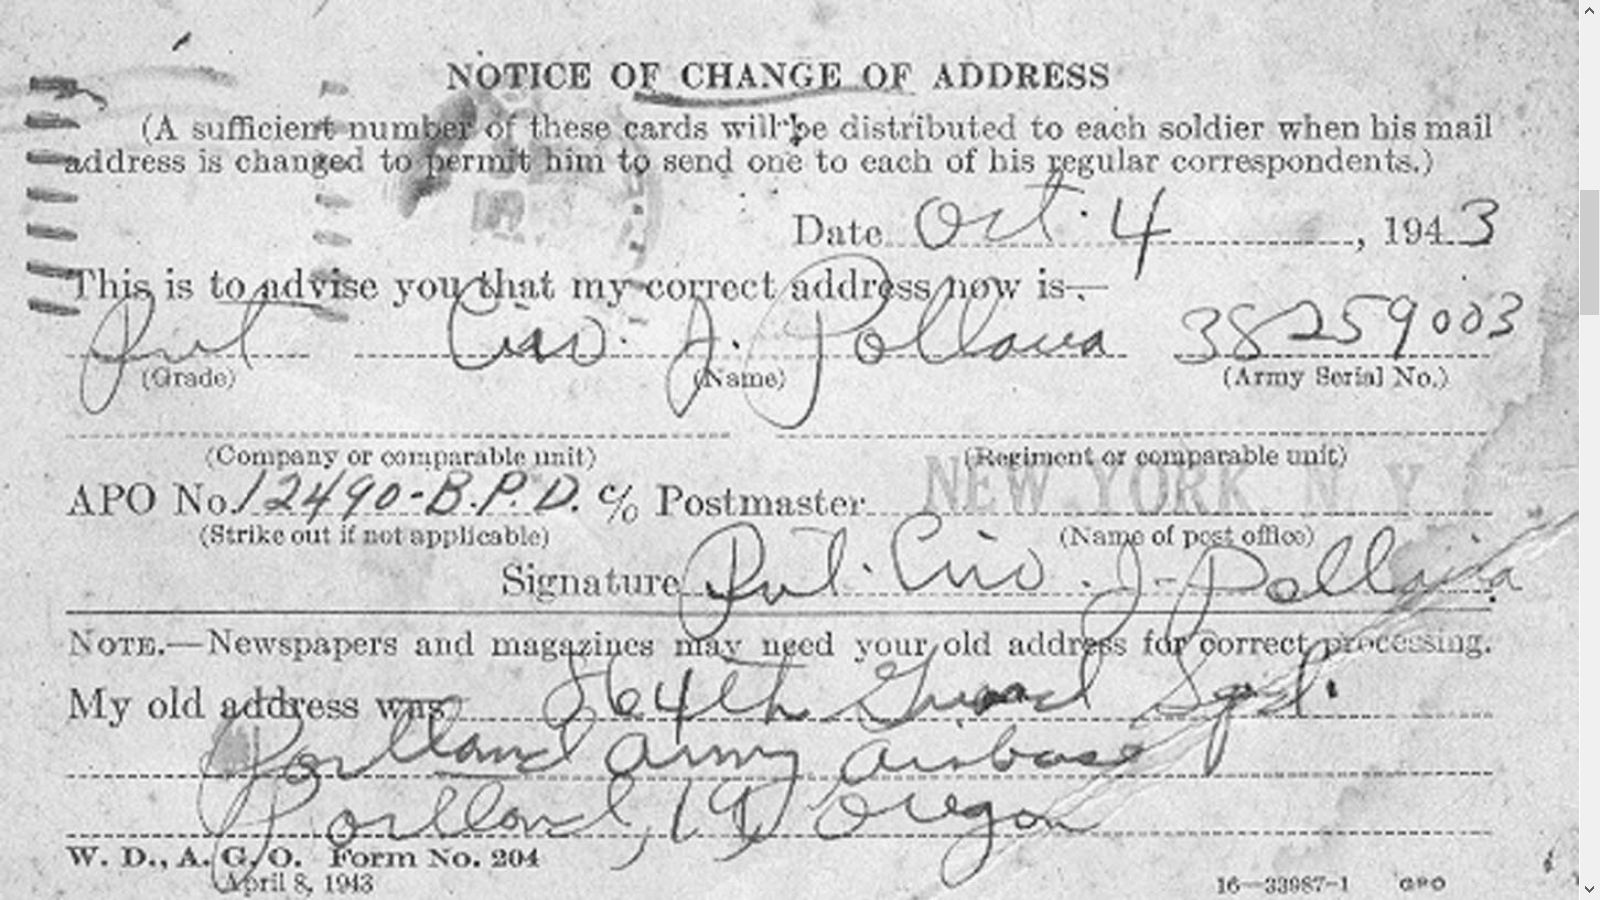 NOTICE OF CHANGE OF ADDRESS
(A sufficient number of these cards will be distributed to each soldier when his mail
address is changed to permit him to send one to each of his regular correspondents.)
Date Oct. 4, 1943
This is to advise you that my correct address now is—
Pvt Ciro. J. 38259003
(Grade) (Name) (Army Serial No.)
(Company or comparable unit) (Regiment or comparable unit)
APO No. 12490-B.P.D. c/o Postmaster NEW YORK N Y
(Strike out if not applicable) (Name of post office)
Signature Pvt. Ciro. J-
NOTE.—Newspapers and magazines may need your old address for correct processing.
My old address was 864th Guard Sqd.
Portland army airbase
Portland, 19, Oregon
W. D., A. G. O. Form No. 204
April 8, 1943
16—33987-1 GPO